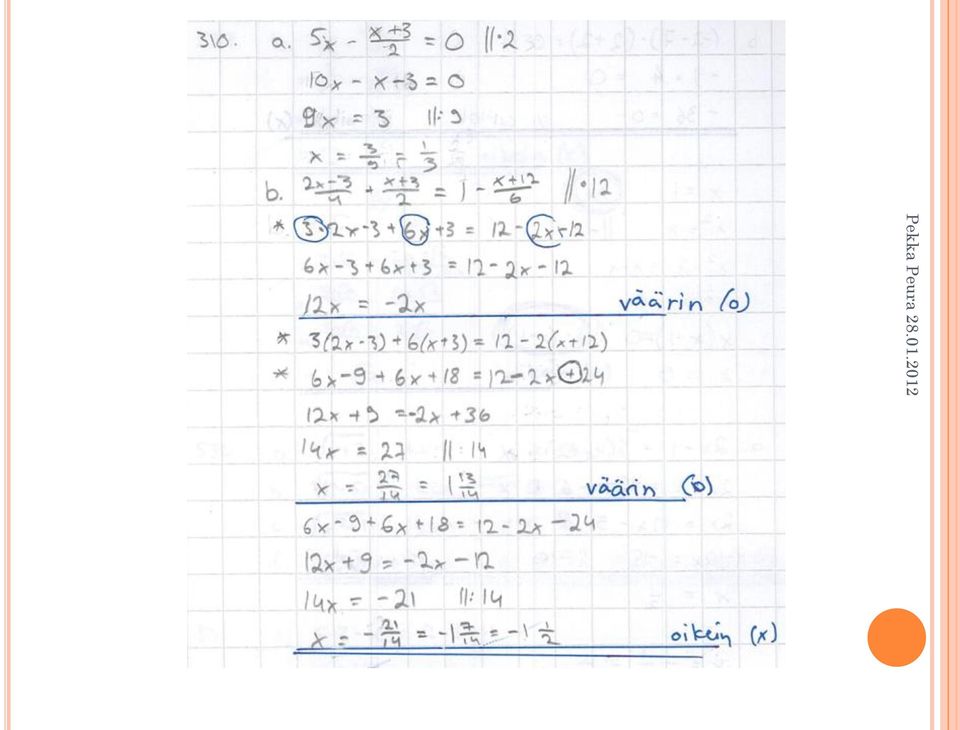 310. a. 5x - \frac{x+3}{2} = 0 ||·2
10x - x-3 = 0
9x = 3 ||: 9
x = \frac{3}{9} = \frac{1}{3}
b. \frac{2x-3}{4} + \frac{x+3}{2} = 1 - \frac{x+12}{6} ||·12
* 3·2x-3 + 6x+3 = 12-2x-12
6x-3+6x+3 = 12-2x-12
12x = -2x väärin (o)
* 3(2x-3)+6(x+3) = 12-2(x+12)
* 6x-9+6x+18 = 12-2x+24
12x+9 = -2x+36
14x = 27 ||: 14
x = \frac{27}{14} = 1\frac{13}{14} väärin (o)
6x-9+6x+18 = 12-2x-24
12x+9 = -2x-12
14x = -21 ||: 14
x = -\frac{21}{14} = -1\frac{7}{14} = -1\frac{1}{2} oikein (x)
Pekka Peura 28.01.2012